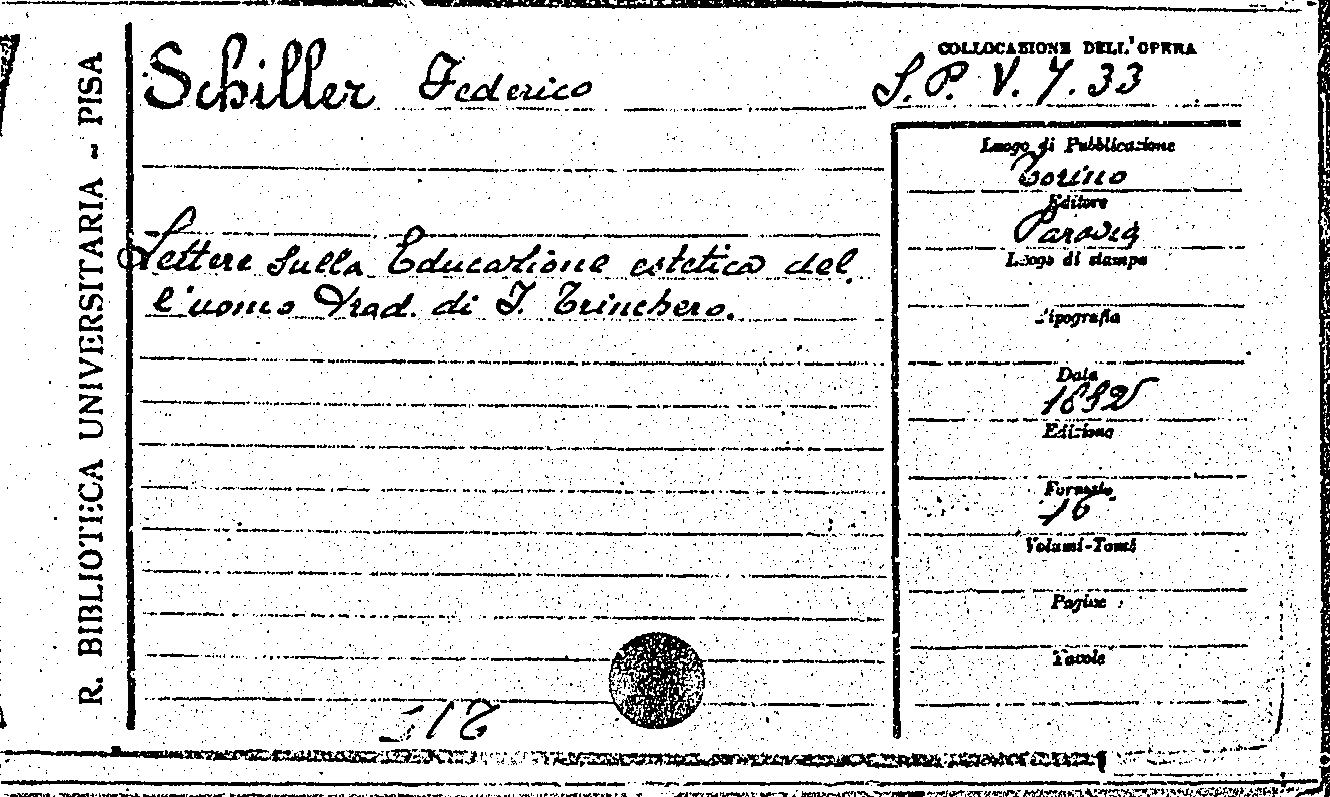 R. BIBLIOTECA UNIVERSITARIA - PISA
Schiller Federico
COLLOCAZIONE DELL'OPERA
S. P. V. 7. 33
Luogo di Pubblicazione
Torino
Editore
Paravia
Luogo di stampa
Tipografia
Data
1892
Edizione
Formato
16
Volumi-Tomi
Pagine
Tavole
Lettere sulla Educazione estetica del
l'uomo Trad. di T. Trinchero.